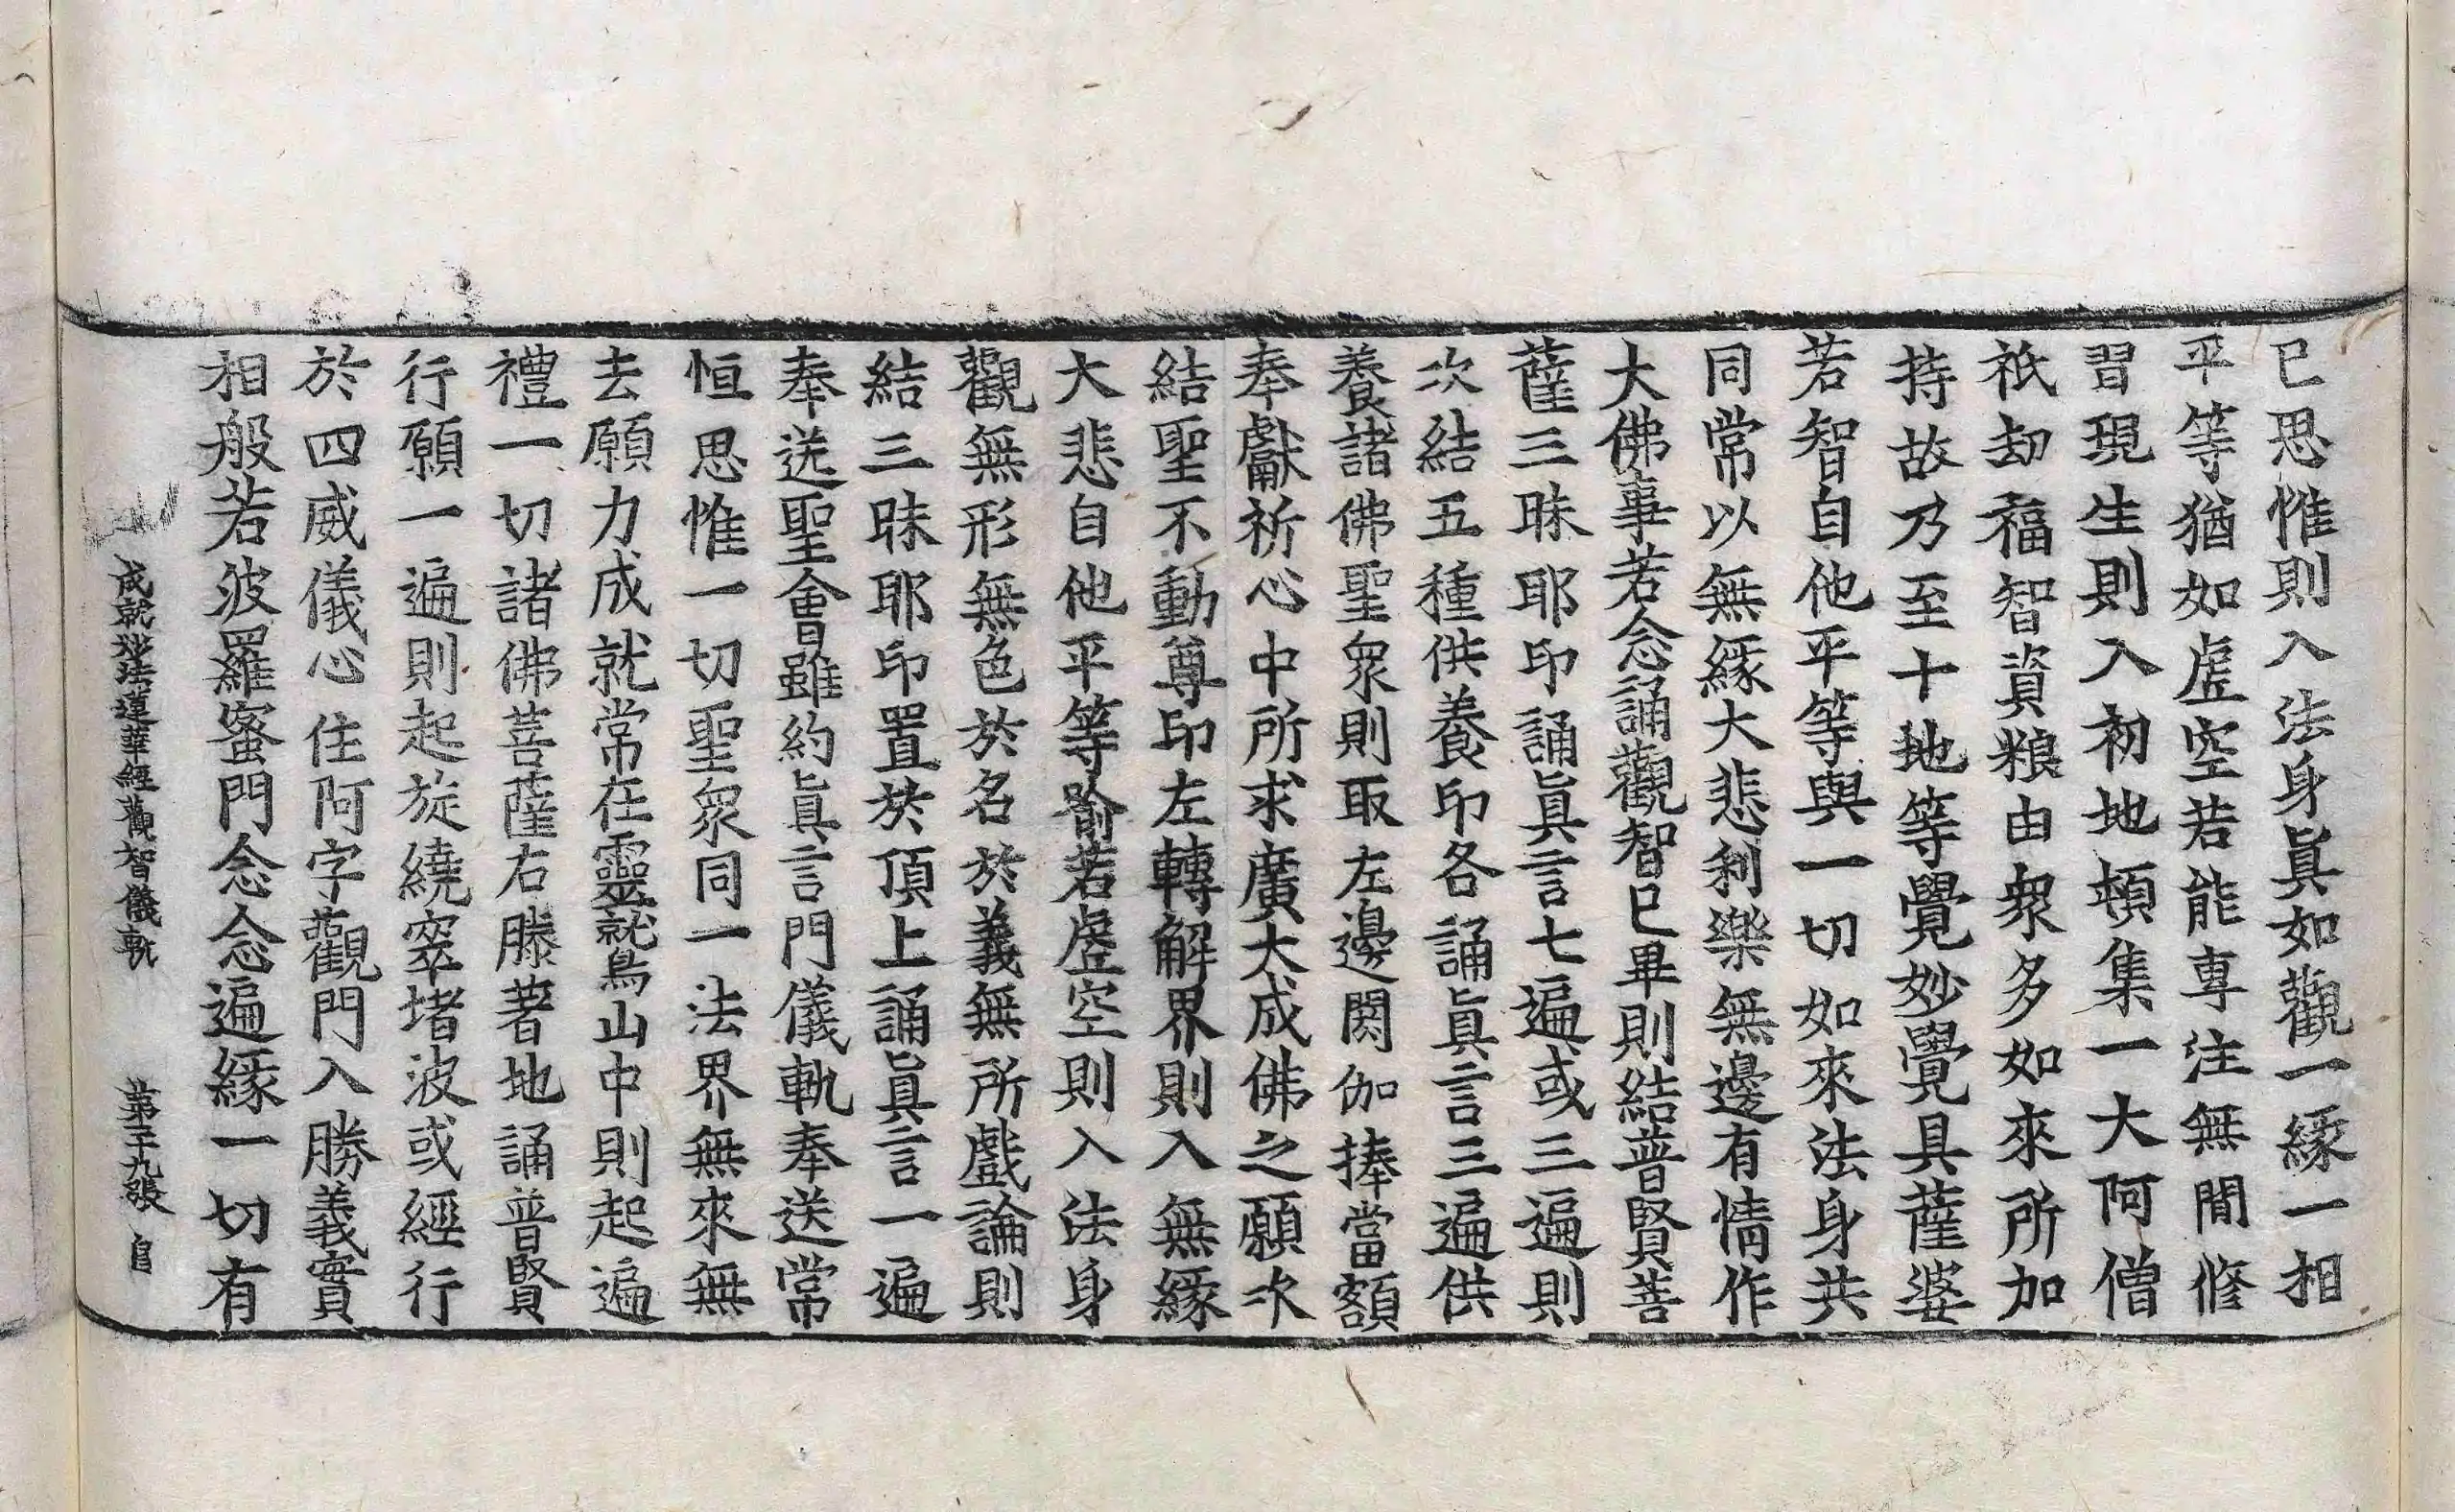 已思惟則入法身眞如觀一緣一相
平等猶如虛空若能專注無間修
習現生則入初地頓集一大阿僧
祇劫福智資粮由衆多如來所加
持故乃至十地等覺妙覺具薩婆
若智自他平等與一切如來法身共
同常以無緣大悲利樂無邊有情作
大佛事若念誦觀智已畢則結普賢菩
薩三昧耶印誦眞言七遍或三遍則
次結五種供養印各誦眞言三遍供
養諸佛聖衆則取左邊閼伽捧當額
奉獻祈心中所求廣大成佛之願次
結聖不動尊印左轉解界則入無緣
大悲自他平等喻若虛空則入法身
觀無形無色於名於義無所戲論則
結三昧耶印置於頂上誦眞言一遍
奉送聖會雖約眞言門儀軌奉送常
恒思惟一切聖衆同一法界無來無
去願力成就常在靈鷲山中則起遍
禮一切諸佛菩薩右膝著地誦普賢
行願一遍則起旋繞窣堵波或經行
於四威儀心住阿字觀門入勝義實
相般若波羅蜜門念念遍緣一切有
成就妙法蓮華經觀智儀軌 第二十九張 自